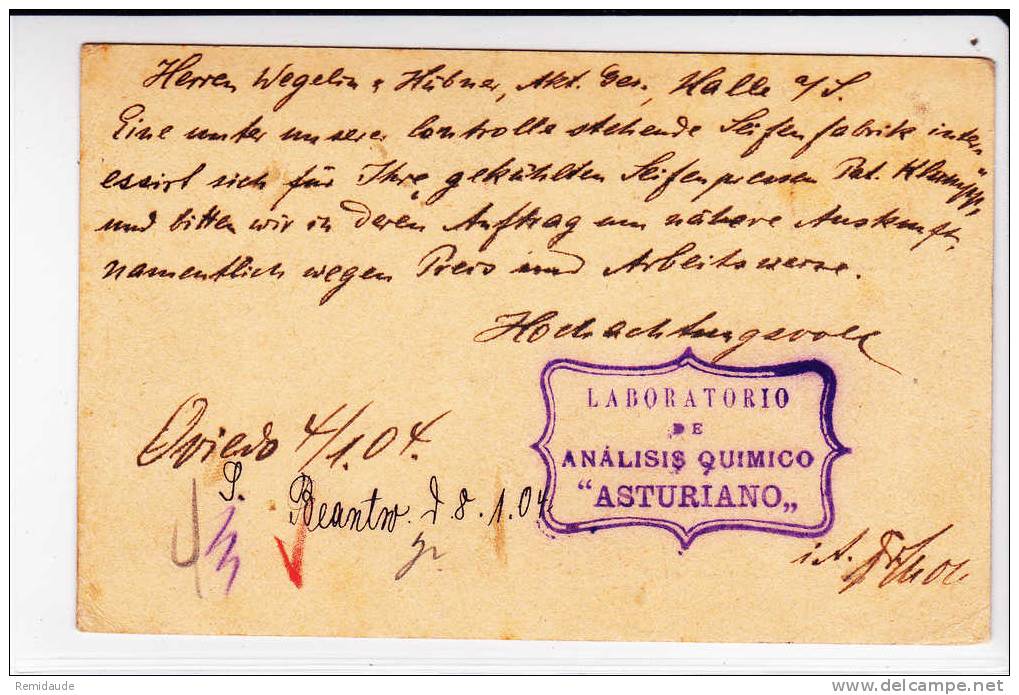 Herren Wegelin & Hübner, Akt. Ges., Halle a/S.
Eine unter unserer Controlle stehende Seifenfabrik inter-
essirt sich für Ihre „gekühlten Seifenpressen Pat. Klumpp“
und bitten wir in deren Auftrag um nähere Auskunft,
namentlich wegen Preis und Arbeitsweise.
Hochachtungsvoll
LABORATORIO
DE
ANÁLISIS QUIMICO
“ASTURIANO„
Oviedo 4/1.04.
S.
Beantw. d 8.1.04
i.A.
Remidaude
delcampe.net